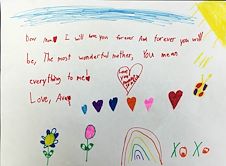 Dear mom I will love you forever and forever you will
be, The most wonderful mother, You mean
everything to me!
Love, Ava
XOXO